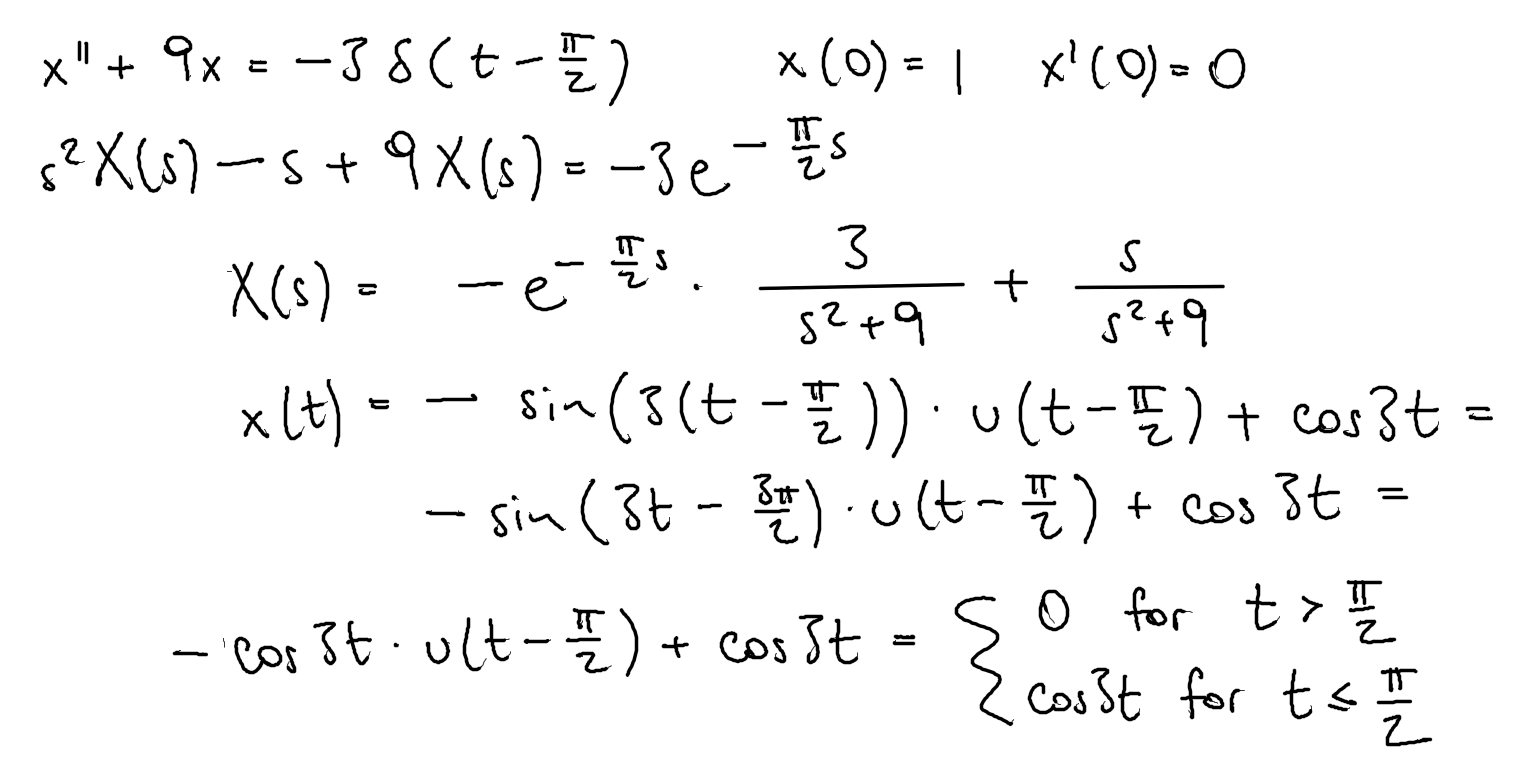 x'' + 9x = -3 δ(t - π/2)    x(0) = 1    x'(0) = 0
s²X(s) - s + 9X(s) = -3e^(-π/2 s)
X(s) = -e^(-π/2 s) · 3/(s²+9) + s/(s²+9)
x(t) = - sin(3(t - π/2)) · u(t - π/2) + cos3t =
- sin(3t - 3π/2) · u(t - π/2) + cos 3t =
- cos 3t · u(t - π/2) + cos 3t = { 0 for t > π/2
cos3t for t ≤ π/2